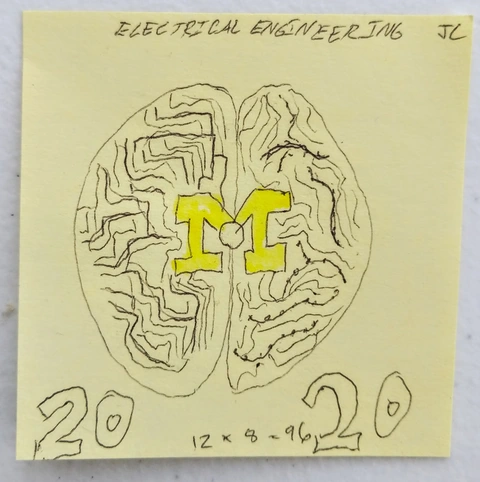 ELECTRICAL ENGINEERING JC
M
20 12 x 8 = 96 20